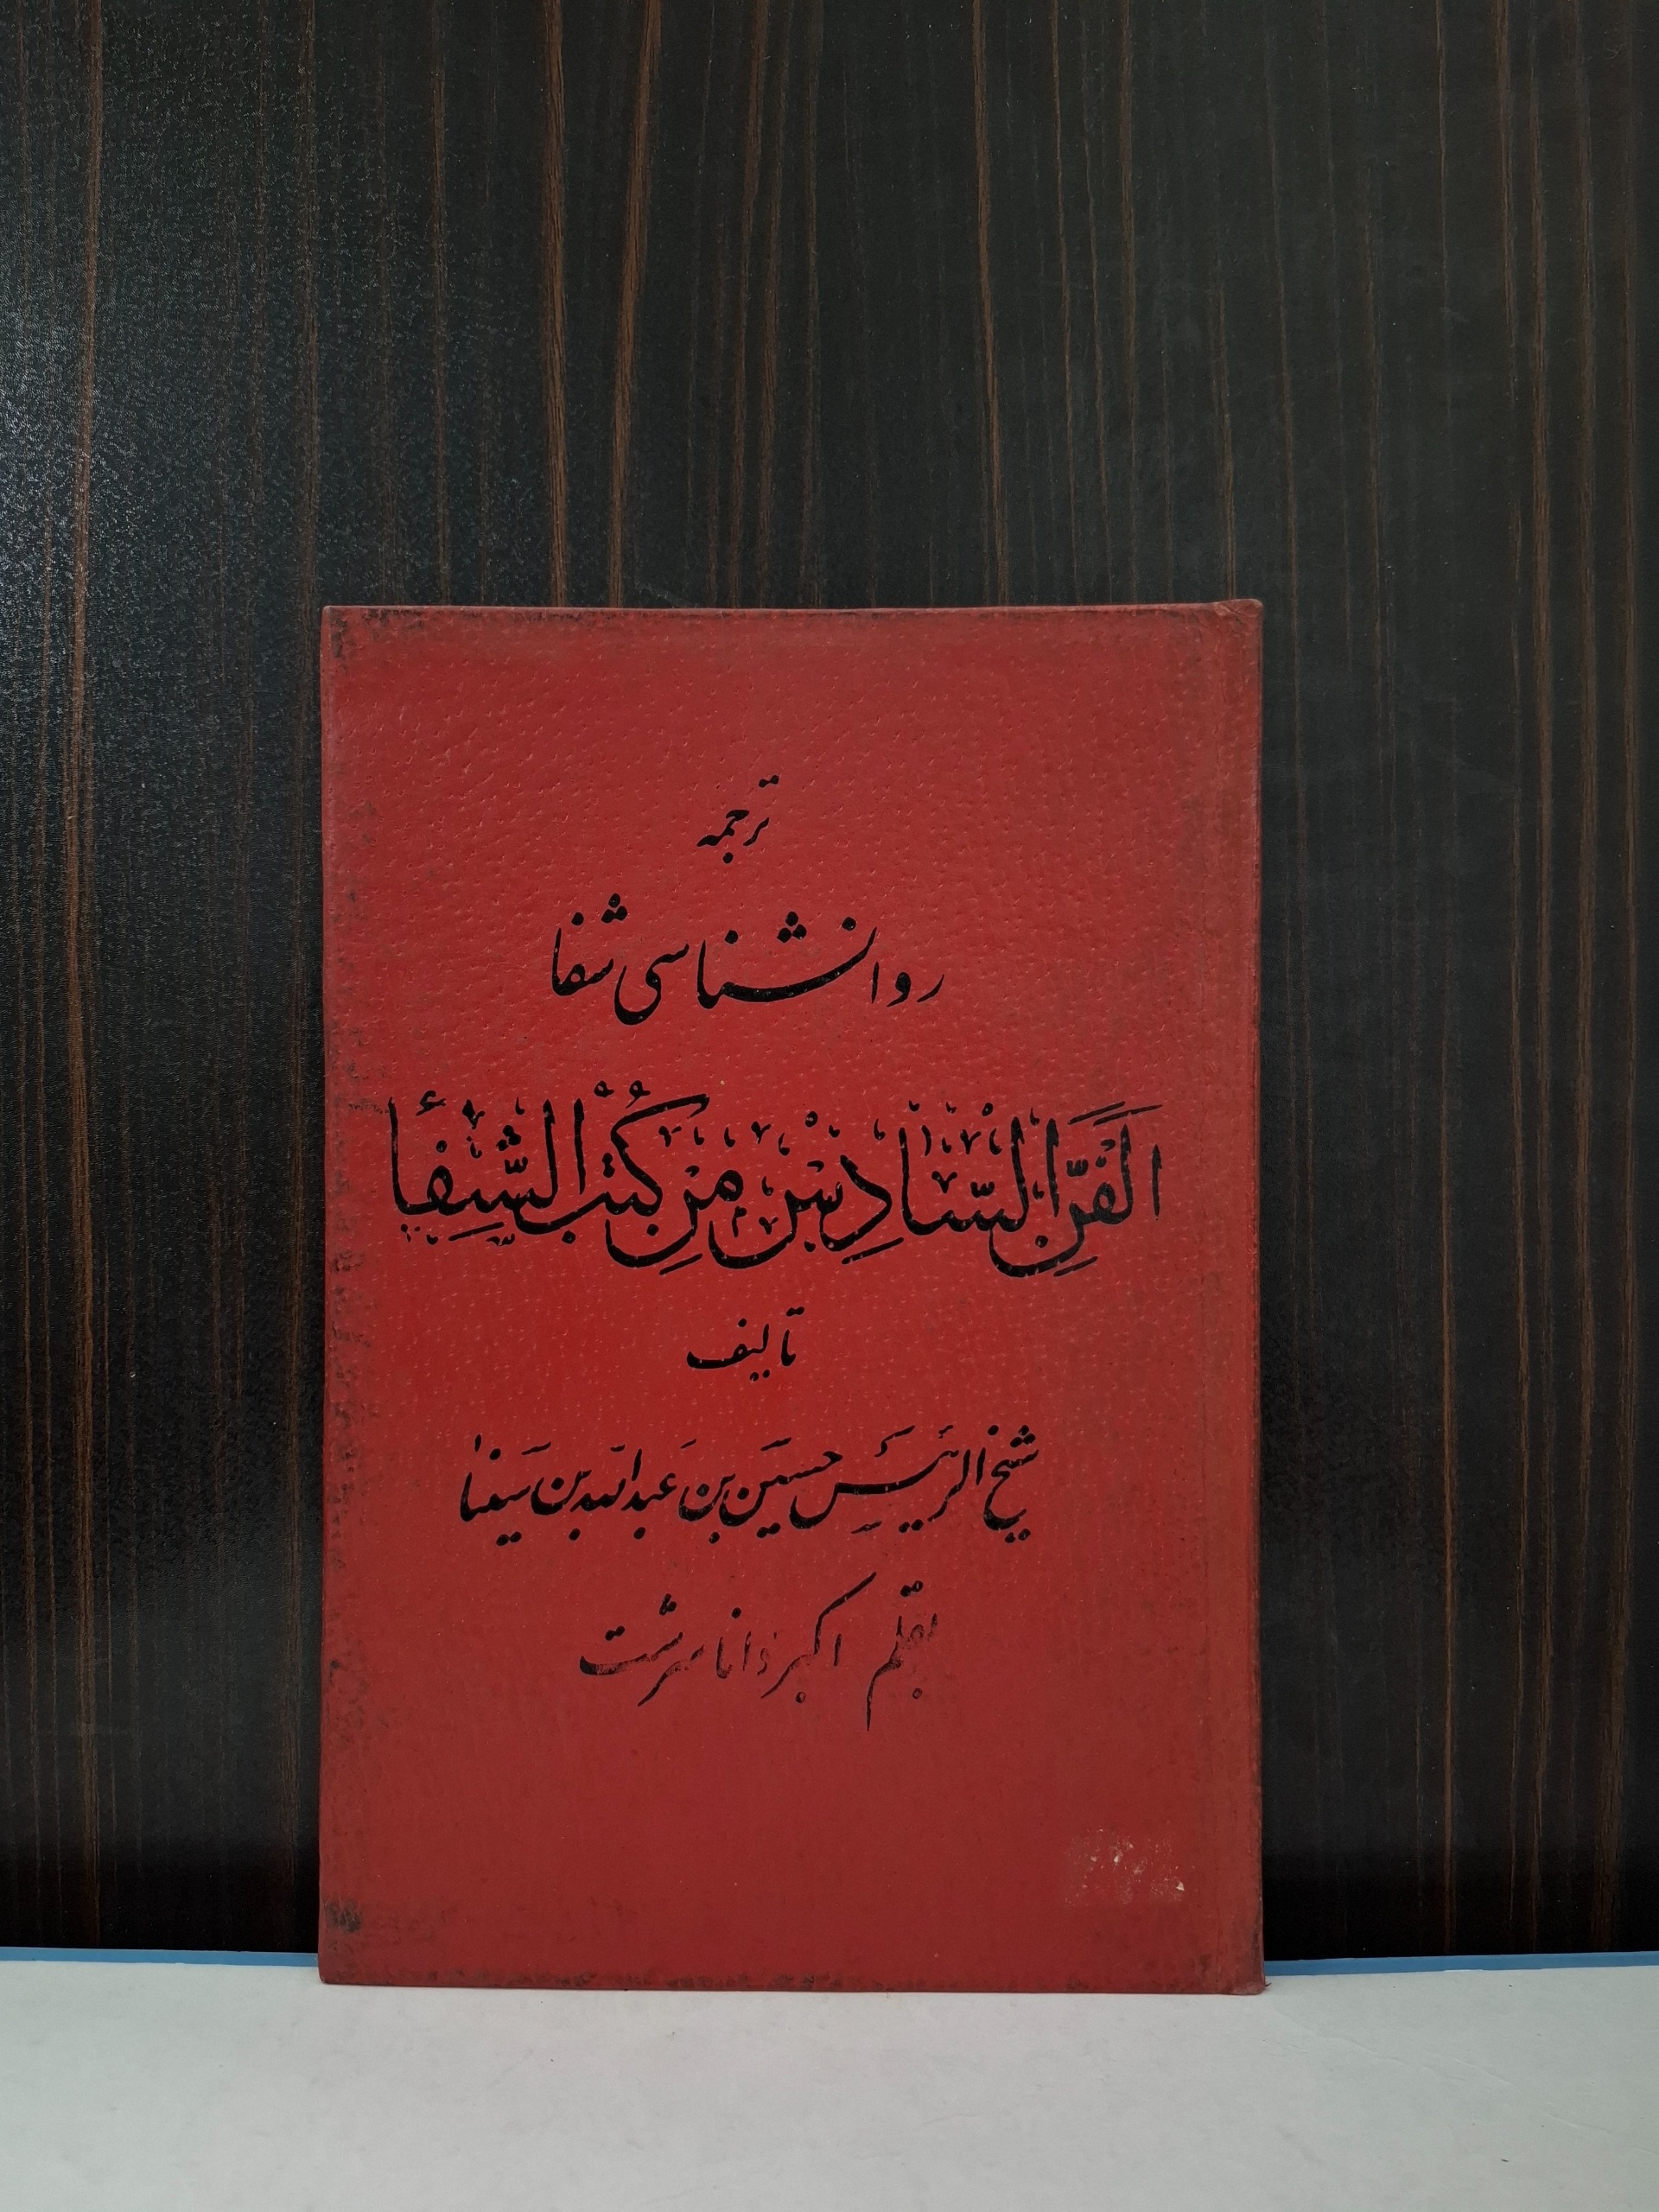 ترجمه
روانشناسی شفا
اَلفَنِّ السّادِسْ مِنْ کُتُبْ الشِّفاء
تألیف
شیخ الرئیس حسین بن عبدالله بن سینا
بقلم اکبر دانا سرشت